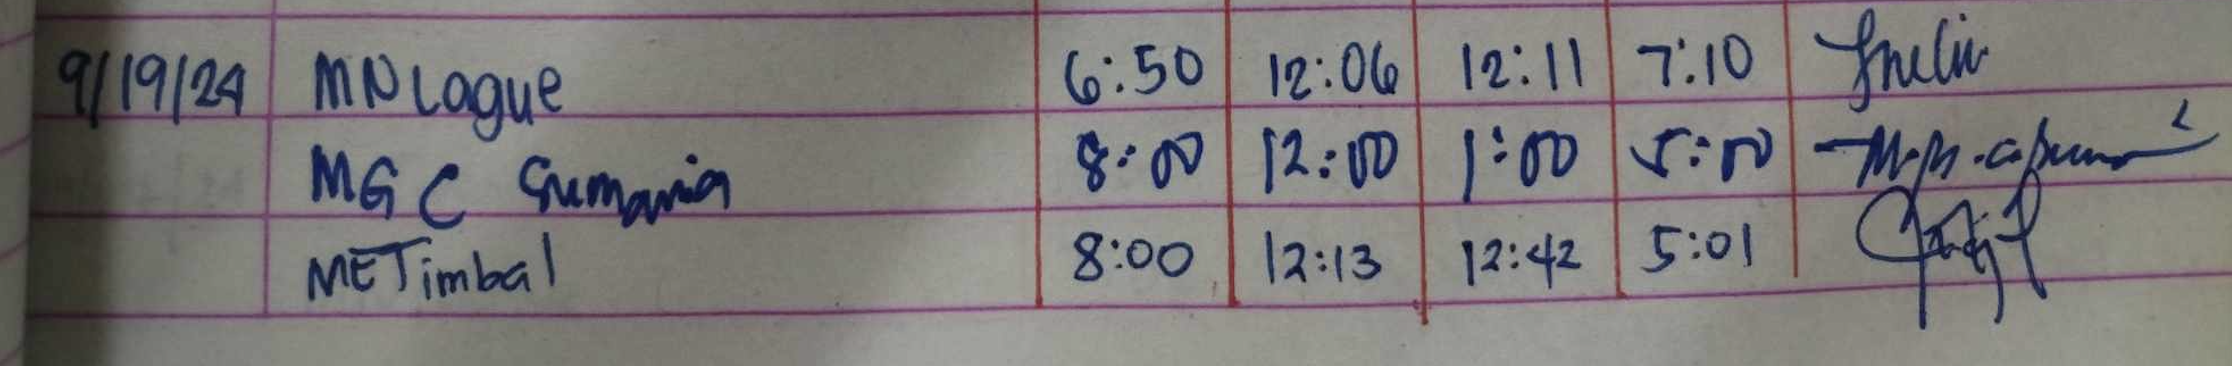 9/19/24 MNLague 6:50 12:06 12:11 7:10
MGC Sumania 8:00 12:00 1:00 5:00
METimbal 8:00 12:13 12:42 5:01